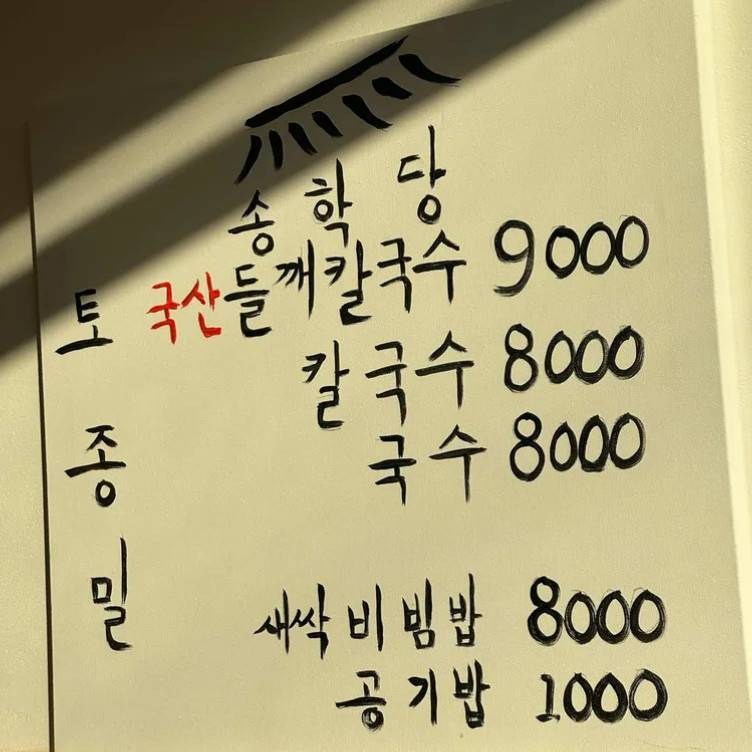 송학당
국산들깨칼국수 9000
칼국수 8000
국수 8000
새싹비빔밥 8000
공기밥 1000
토종밀